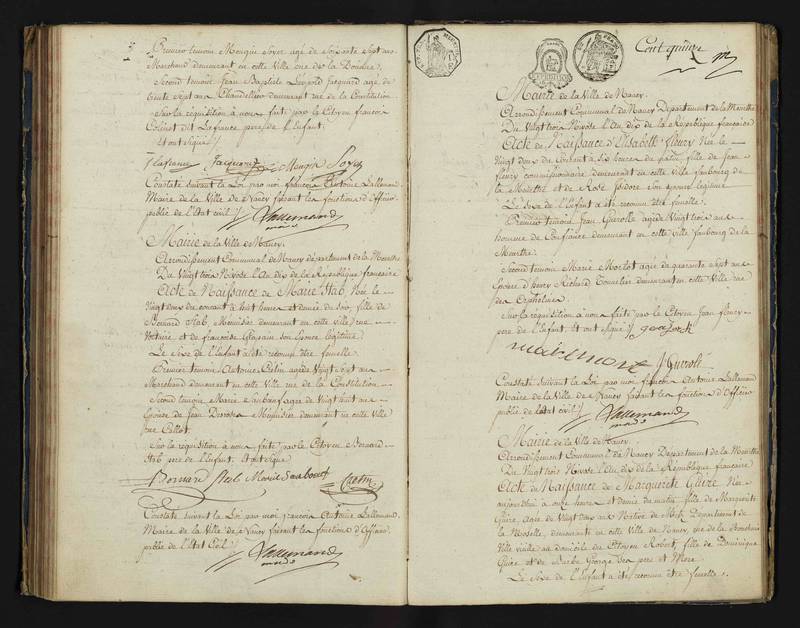 Premier temoin Mougin Soyer agé de Soixante Sept ans
Marchand demeurant en cette Ville rue de la Douane.
Second temoin Jean Baptiste Léopold Jacquard agé de
trente Sept ans Chandellier demeurant rue de la Constitution
Sur la requisition à nous faite par le Citoyen francois
dit Lafrance pere de l'Enfant.
Et ont signé
Lafrance Jacquard Mougin Soyer
Constaté suivant la Loi par moi françois Antoine Lallemand
Maire de la Ville de Nancy faisant les fonctions d'Officier
public de l'Etat civil
Lallemand
Mairie de la Ville de Nancy.
Arrondissement Communal de Nancy département de la Meurthe
Du Vingt trois Nivose l'An dix de la République française
Acte de Naissance de Marie Stab, Née le
Vingt deux du courant à huit heures et demie du soir, fille de
Bernard Stab, Menuisier demeurant en cette ville rue
et de francoise son Epouse légitime
Le Sexe de l'Enfant a été reconnu être femelle.
Premier temoin Antoine agé de Vingt Sept ans
Marchand demeurant en cette Ville rue de la Constitution
Second temoin Marie agée de Vingt huit ans
Epouse de Jean Menuisier demeurant en cette Ville
rue Callot.
Sur la requisition à nous faite par le Citoyen Bernard
Stab pere de l'Enfant. Et ont signé
Bernard Marie
Constaté suivant la Loi par moi françois Antoine Lallemand
Maire de la Ville de Nancy faisant les fonctions d'Officier
public de l'Etat Civil
Lallemand
Cent quinze
Mairie de la Ville de Nancy.
Arrondissement Communal de Nancy Département de la Meurthe
Du Vingt trois Nivose l'An dix de la République francaise
Acte de Naissance d'Elisabeth fleury Née le
Vingt deux du Courant à Six heures du matin, fille de Jean
fleury commissionnaire, demeurant en cette Ville faubourg de
la Meurthe et de Rose Isidore Son épouse légitime
Le Sexe de l'Enfant a été reconnu être femelle.
Premier temoin Jean Guerolle agé de Vingt trois ans
homme de Confiance demeurant en cette Ville faubourg de la
Meurthe.
Second temoin Marie Morlot agée de quarante Sept ans
Epouse d'henry Richard Tonnelier demeurant en cette Ville rue
des Orphelines
Sur la requisition à nous faite par le Citoyen Jean fleury
pere de l'Enfant. Et ont signé
Constaté suivant la Loi par moi françois Antoine Lallemand
Maire de la Ville de Nancy faisant les fonctions d'Officier
public de l'Etat civil
Lallemand
Mairie de la Ville de Nancy.
Arrondissement Communal de Nancy Département de la Meurthe
Du Vingt trois Nivose l'An dix de la République francaise
Acte de Naissance de Marguerite Guire Née
aujourdhui à onze heures et demie du matin, fille de Marguerite
Guire, Agée de Vingt deux ans Native de Metz Département de
la Moselle, demeurante en cette Ville de Nancy, rue de la
Ville vieille au domicile du Citoyen Robert, fille de Dominique
Guire et de Barbe George Ses pere et Mere.
Le Sexe de l'Enfant a été reconnu être femelle.